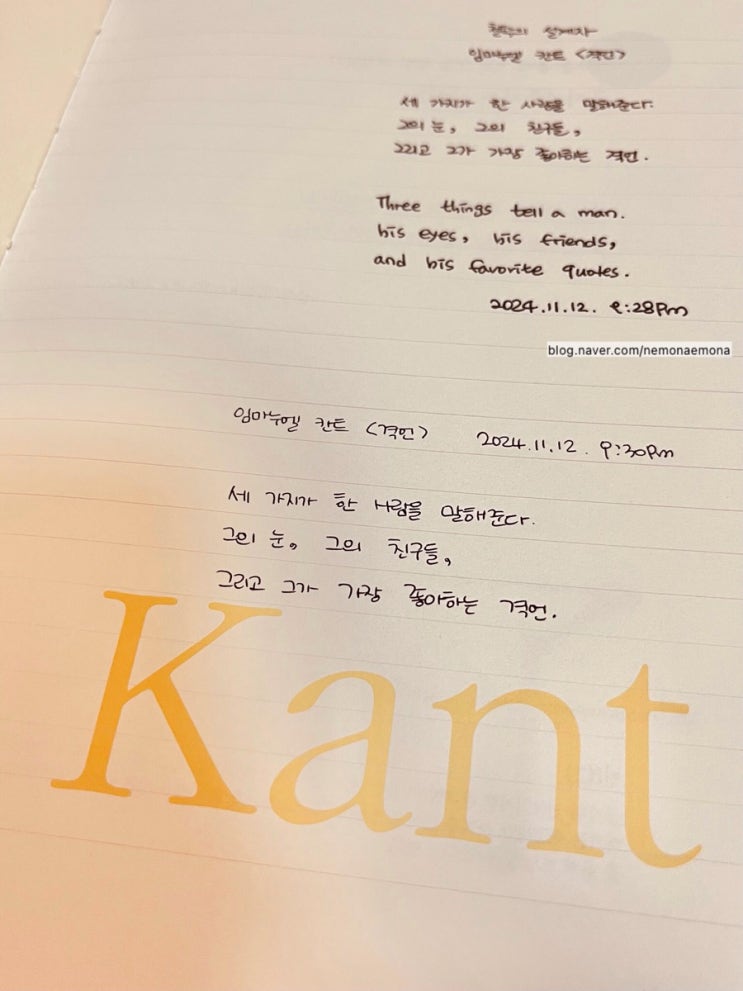 철학의 설계자
임마누엘 칸트 <격언>
세 가지가 한 사람을 말해준다.
그의 눈, 그의 친구들,
그리고 그가 가장 좋아하는 격언.
Three things tell a man.
his eyes, his friends,
and his favorite quotes.
2024.11.12. 9:28pm
blog.naver.com/nemonaemona
임마누엘 칸트 <격언> 2024.11.12. 9:30pm
세 가지가 한 사람을 말해준다.
그의 눈, 그의 친구들,
그리고 그가 가장 좋아하는 격언.
Kant